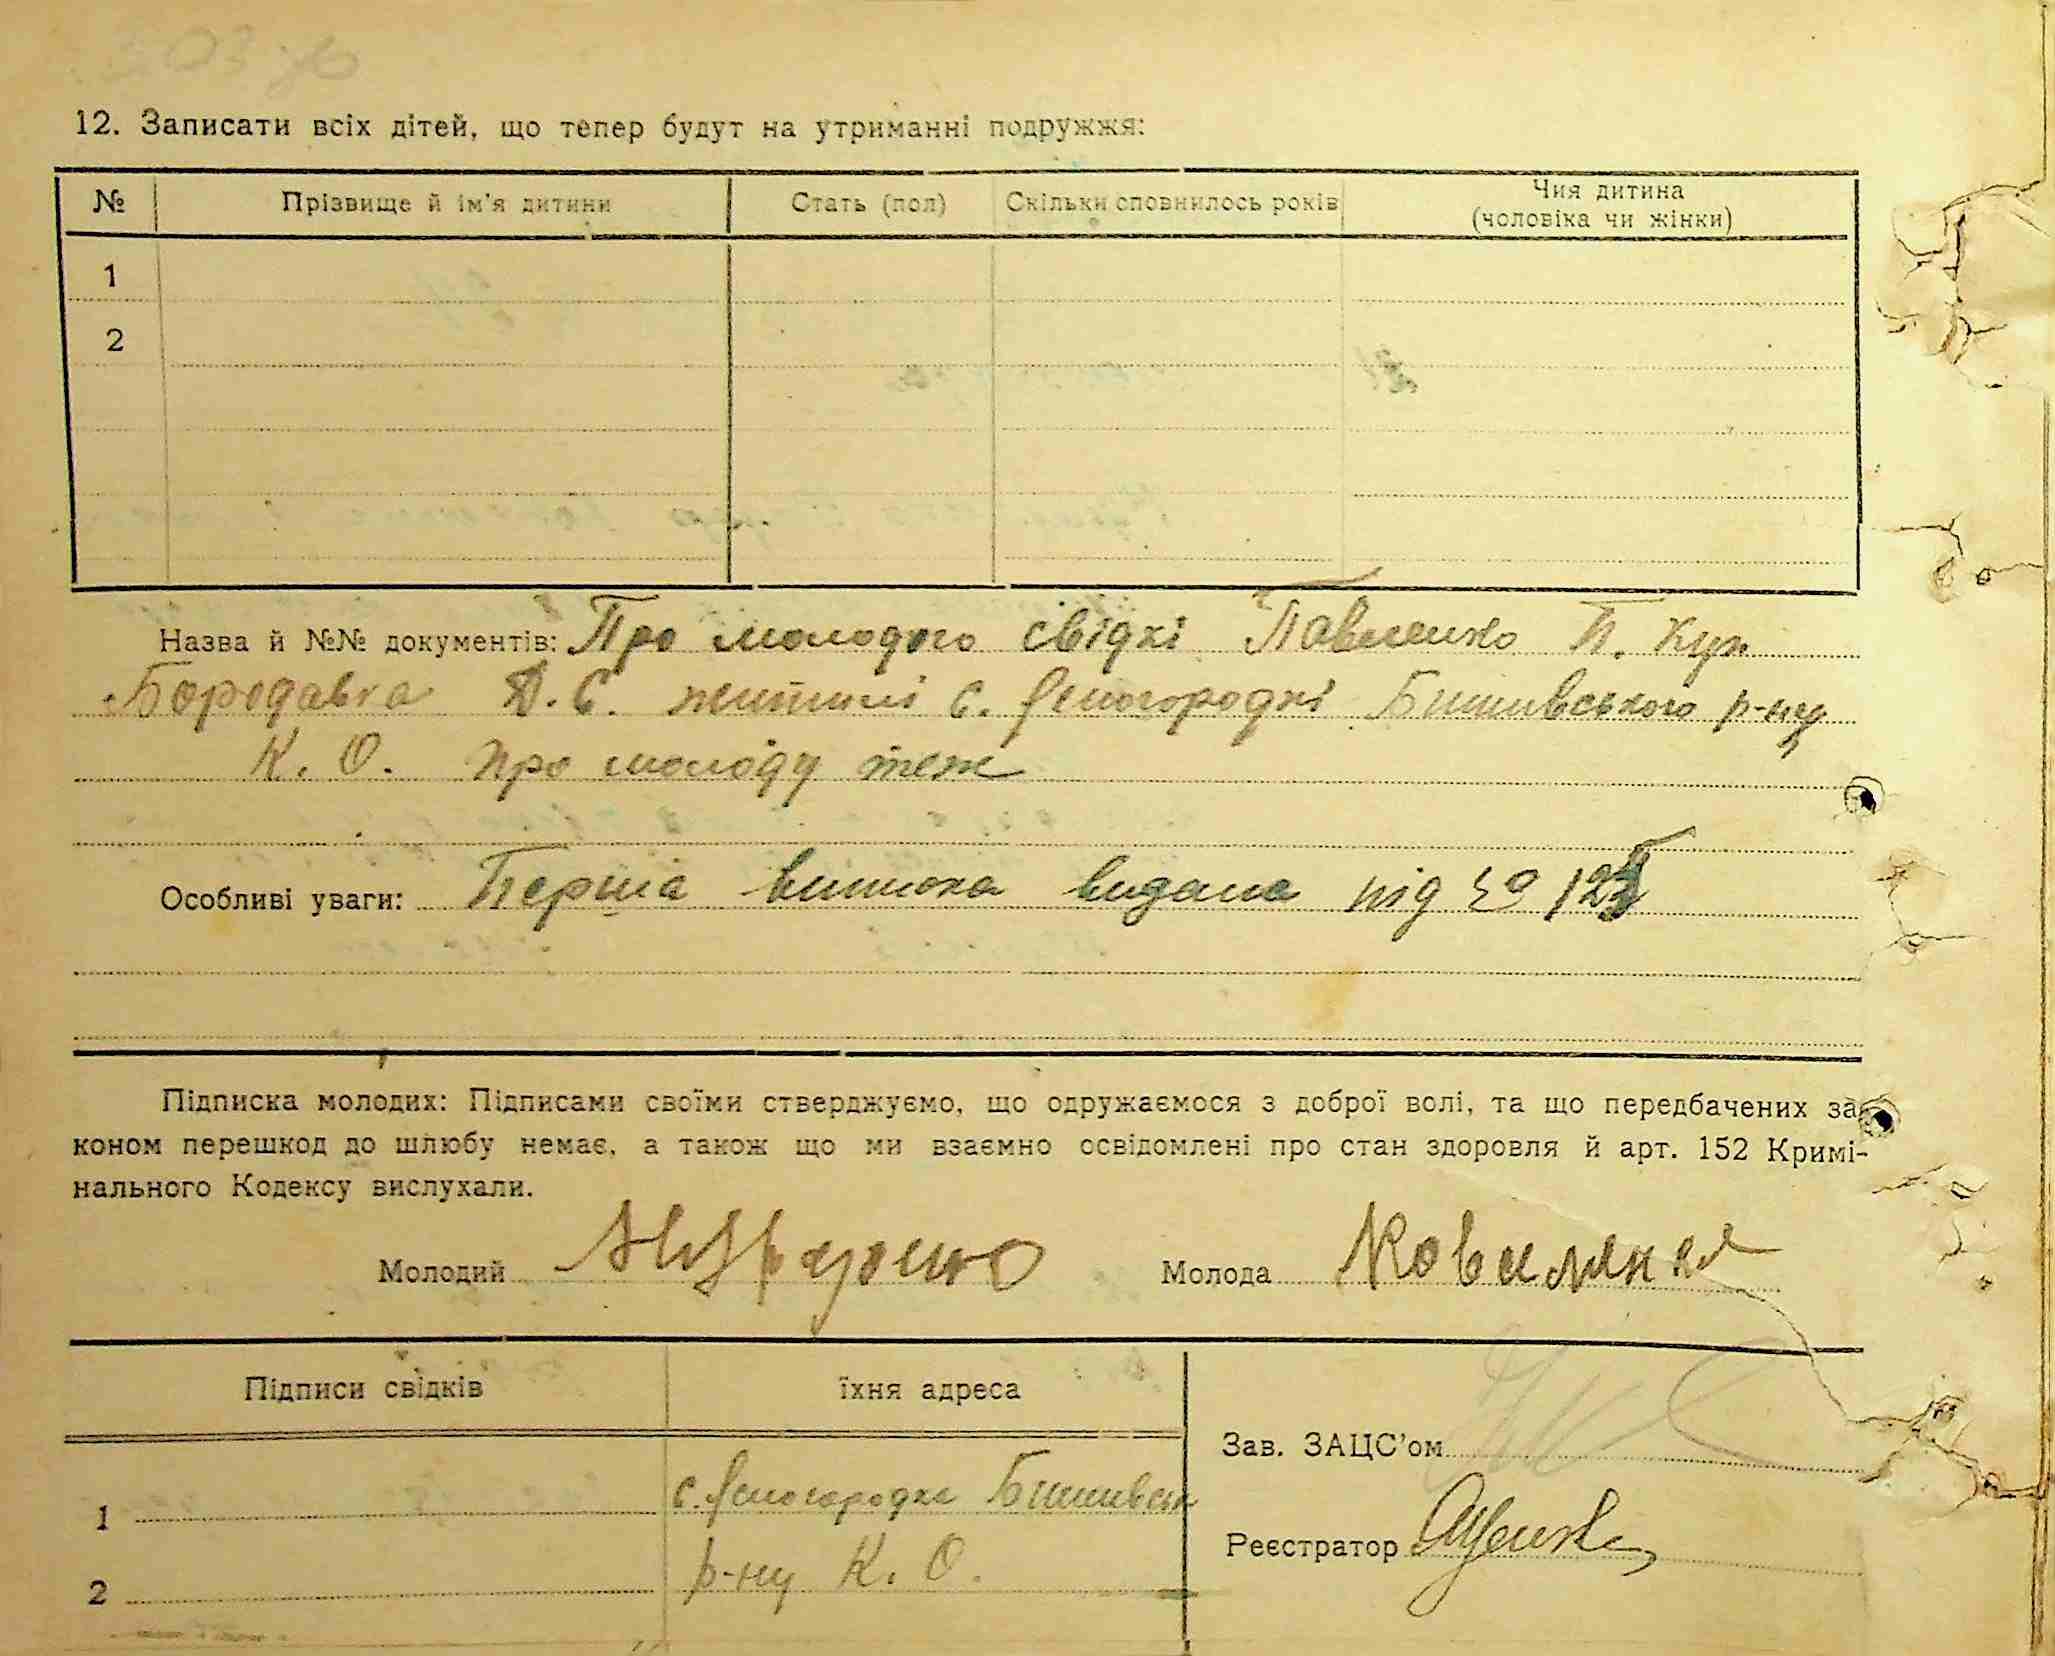 203 зв
12. Записати всіх дітей, що тепер будут на утриманні подружжя:
№ Прізвище й ім'я дитини Стать (пол) Скільки сповнилось років Чия дитина (чоловіка чи жінки)
1
2
Назва й №№ документів: Про молодого свідкі Павленко П. Кул
Бородавка Д. Є. жителі с. Білогородкі Бишивського р-ну
К. О. Про молоду теж
Особливі уваги: Перша виписка видана під №
Підписка молодих: Підписами своїми стверджуємо, що одружаємося з доброї волі, та що передбачених за-
коном перешкод до шлюбу немає, а також що ми взаємно освідомлені про стан здоровля й арт. 152 Кримі-
нального Кодексу вислухали.
Молодий Молода
Підписи свідків їхня адреса
Зав. ЗАЦС'ом
1 с. Білогородка Бишивськ
Реєстратор
2 р-ну К. О.